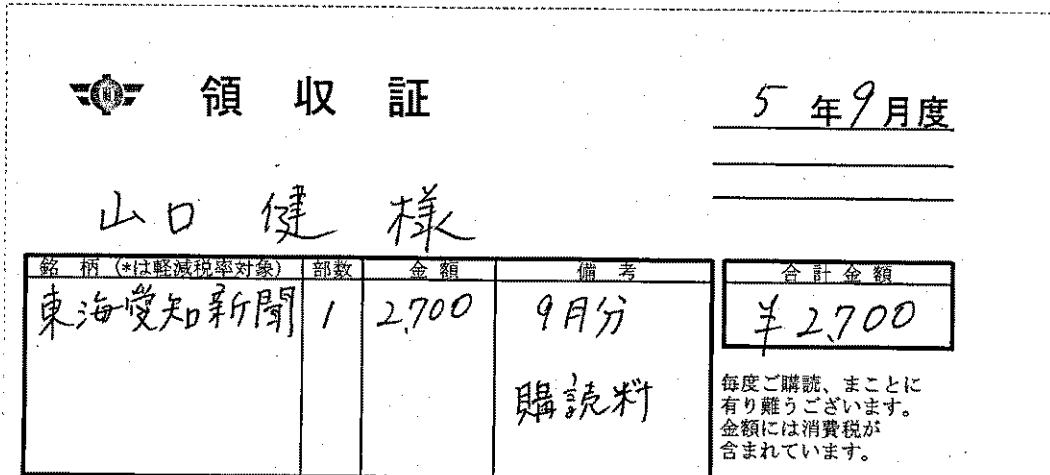 領収証
5年9月度
山口 健 様
銘柄(*は軽減税率対象) 部数 金額 備考 合計金額
東海愛知新聞 1 2,700 9月分 ¥2,700
購読料
毎度ご購読、まことに
有り難うございます。
金額には消費税が
含まれています。